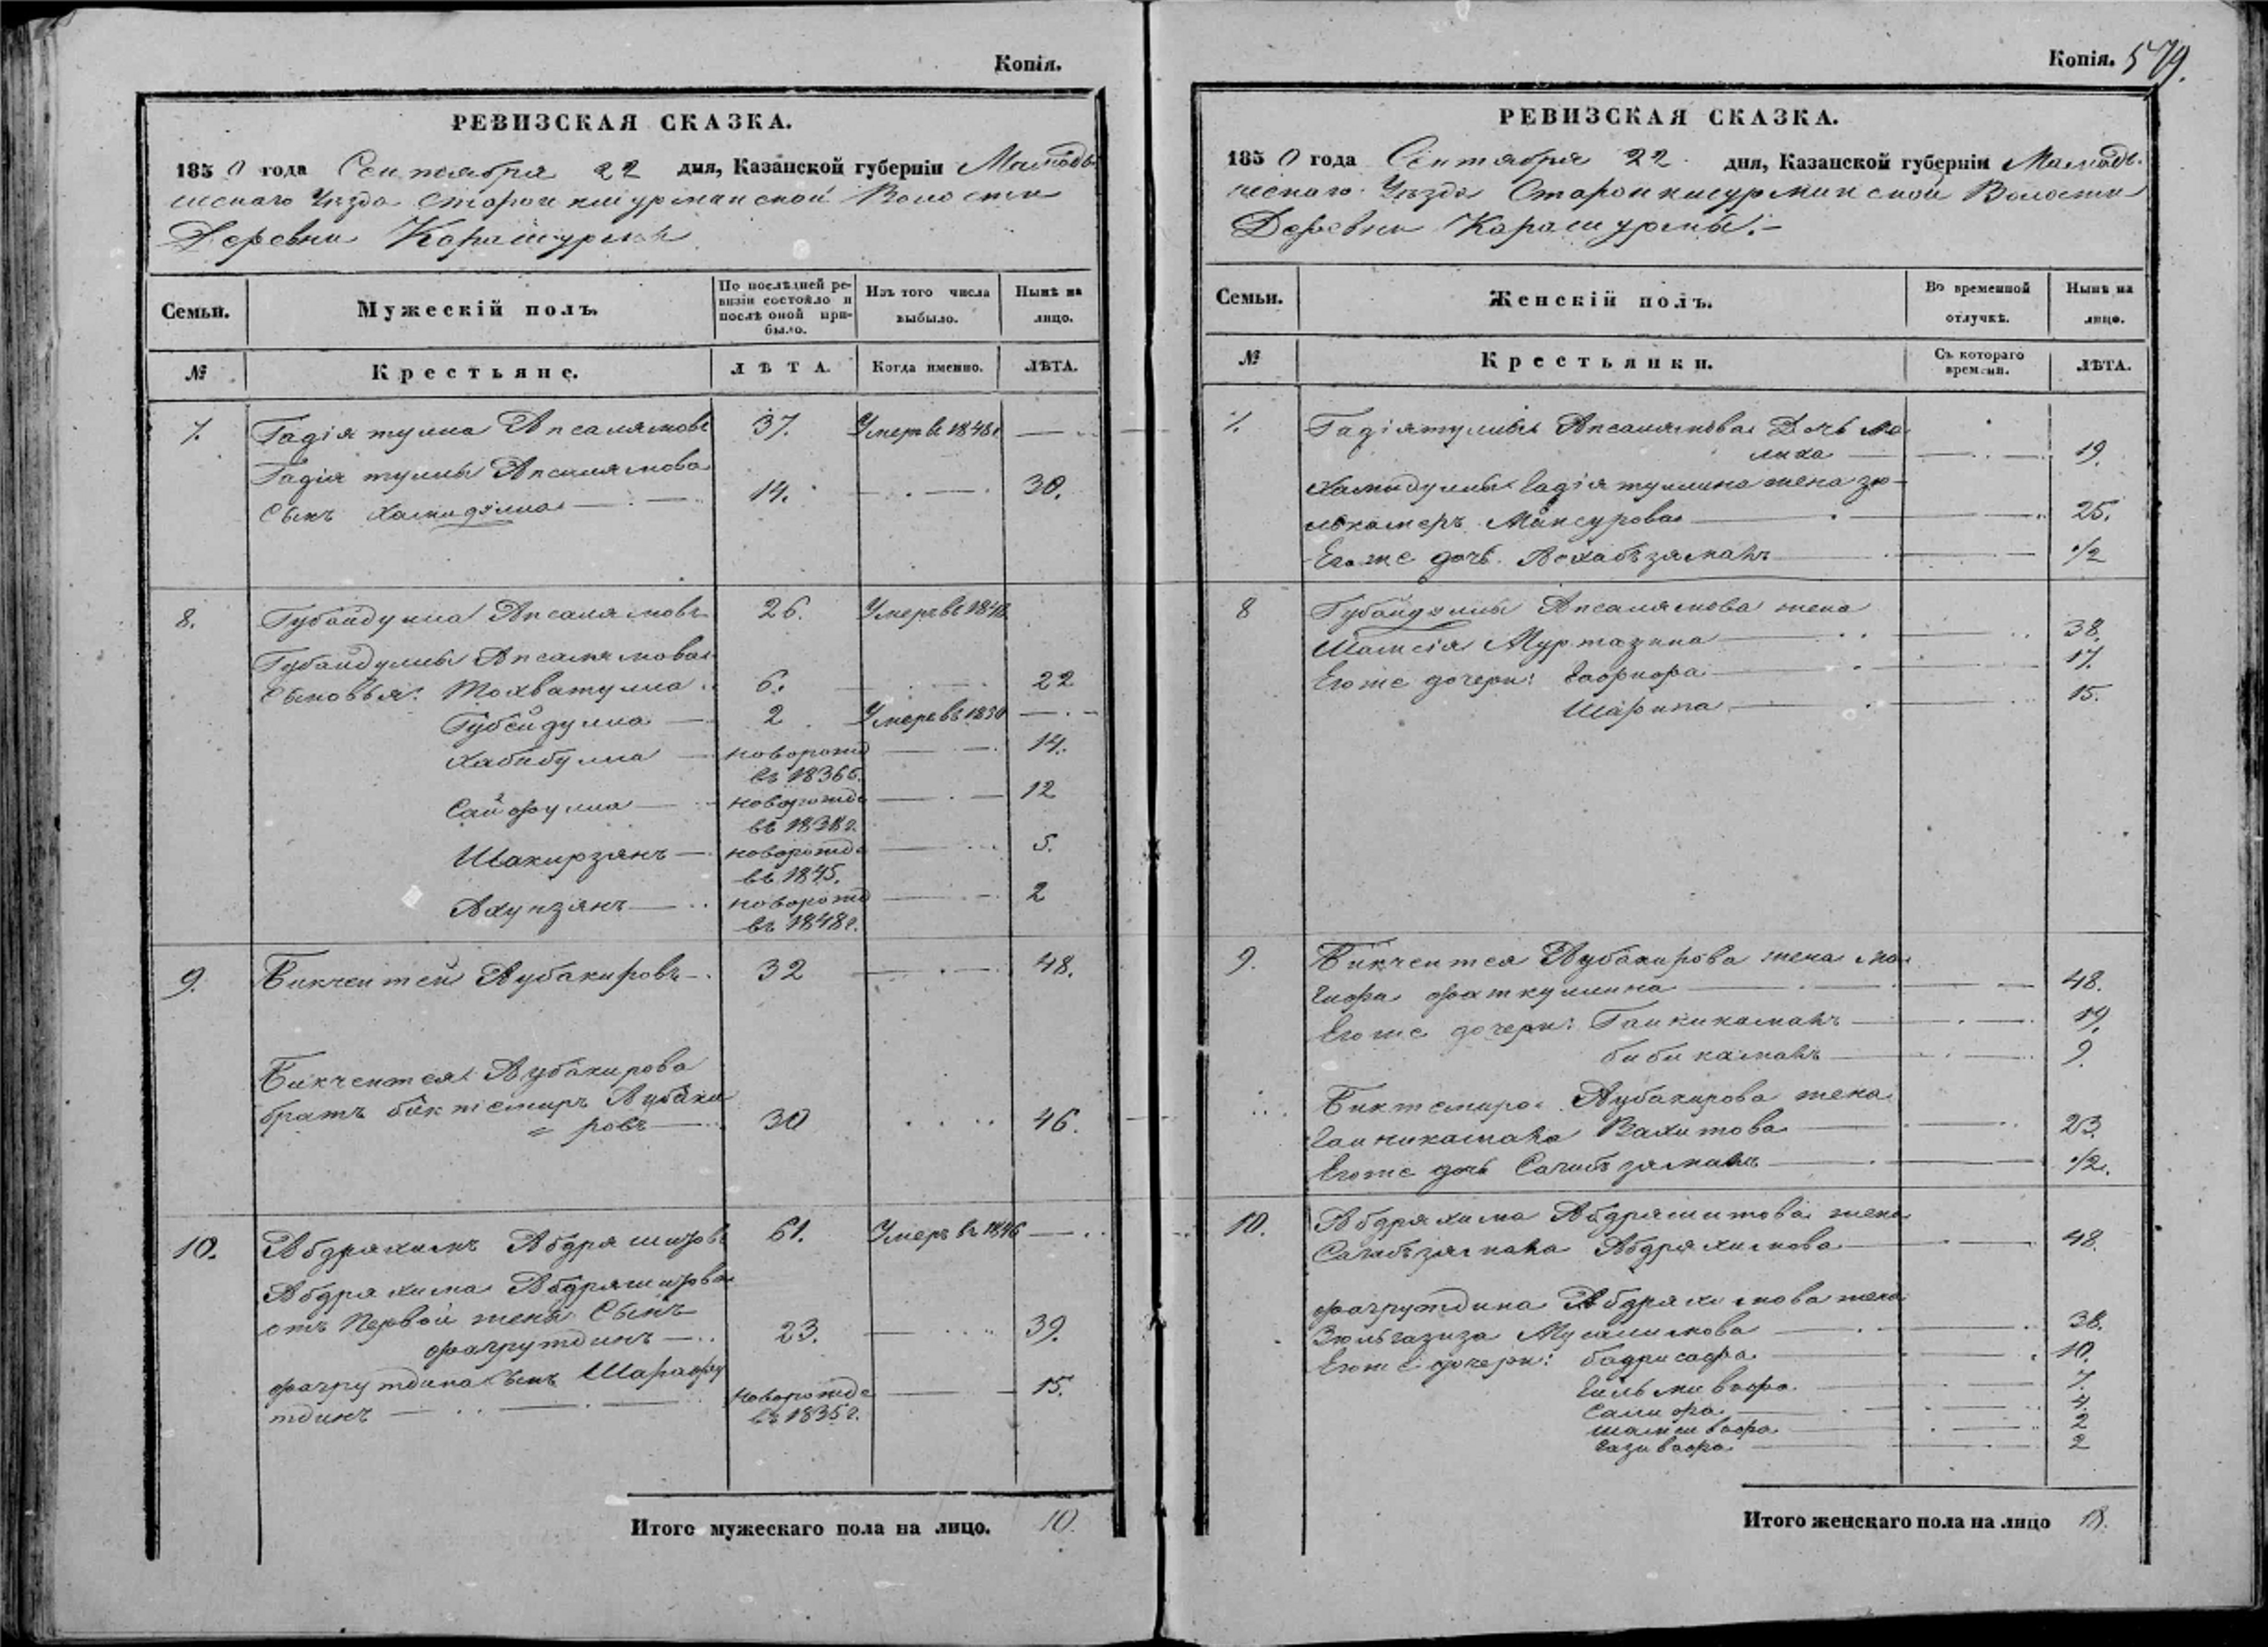 Копія.
РЕВИЗСКАЯ СКАЗКА.
1850 года Сентября 22 дня, Казанской губерніи Мамады
шскаго Уѣзда Старой кисурманской Волости
Деревни
Семьи.
Мужескій полъ.
По послѣдней ре-
визіи состояло и
послѣ оной при-
было.
Изъ того числа
выбыло.
Нынѣ на
лицо.
№
Крестьяне.
ЛѢТА.
Когда именно.
ЛѢТА.
7. Гадіятулла Апсалямовъ 37. Умеръ въ 1848г
Гадіятуллы Апсалямова
сынъ Хамидулла 14. 30.
8. Губайдулла Апсалямовъ 26. Умеръ въ
Губайдуллы Апсалямова
сыновья: Мохватулла 6. 22
Губейдулла 2 Умеръ въ
Хабибулла новорожд 14.
въ 1836г.
Сайфулла новорожд 12
въ 1838г.
Шакирзянъ новорожд 5.
въ 1845.
Ахунзянъ новорожд 2
въ 1848г.
9. Бикчентей Аубакировъ 32 48.
Бикчентея Аубакирова
братъ биктемиръ Аубаки
ровъ 30 46.
10. Абдряхимъ Абдряшитовъ 61. Умеръ въ 1846
Абдряхима Абдряшитова
отъ Первой жены Сынъ
фахрутдинъ 23. 39.
фахрутдина Сынъ Шарафу
тдинъ новорожде 15.
въ 1835г.
Итого мужескаго пола на лицо. 10.
Копія. 579.
РЕВИЗСКАЯ СКАЗКА.
1850 года Сентября 22 дня, Казанской губерніи Мамады-
шскаго Уѣзда Старой кисурминской Волости
Деревни Карашурмы.
Семьи.
Женскій полъ.
Во временной
отлучкѣ.
Нынѣ на
лицо.
№
Крестьянки.
Съ котораго
времени.
ЛѢТА.
7. Гадіятуллы Апсалямова Дочь Ма
лика 19.
Хамидуллы Гадіятуллина жена зю-
лькамеръ Мансурова 25.
Его же дочь 1/2
8 Губайдуллы Апсалямова жена
Шамсія Муртазина 38.
Его же дочери: 17.
Шарипа 15.
9. Бикчентея Аубакирова жена Ма
гифа фаткуллина 48.
Его же дочери: 19.
бибикамалъ 9.
Биктемира Аубакирова жена
Вахитова 23.
Его же дочь Сагибъзямалъ 1/2.
10. Абдряхима Абдряшитова жена
Сагибъзямала Абдряхимова 48.
фахрутдина Абдряхимова жена
Зюльгазиза Мусалимова 38.
Его же дочери: бадрисафа 10.
Гильмивафа 7.
4.
шамсивафа 2
газивафа 2
Итого женскаго пола на лицо 18.